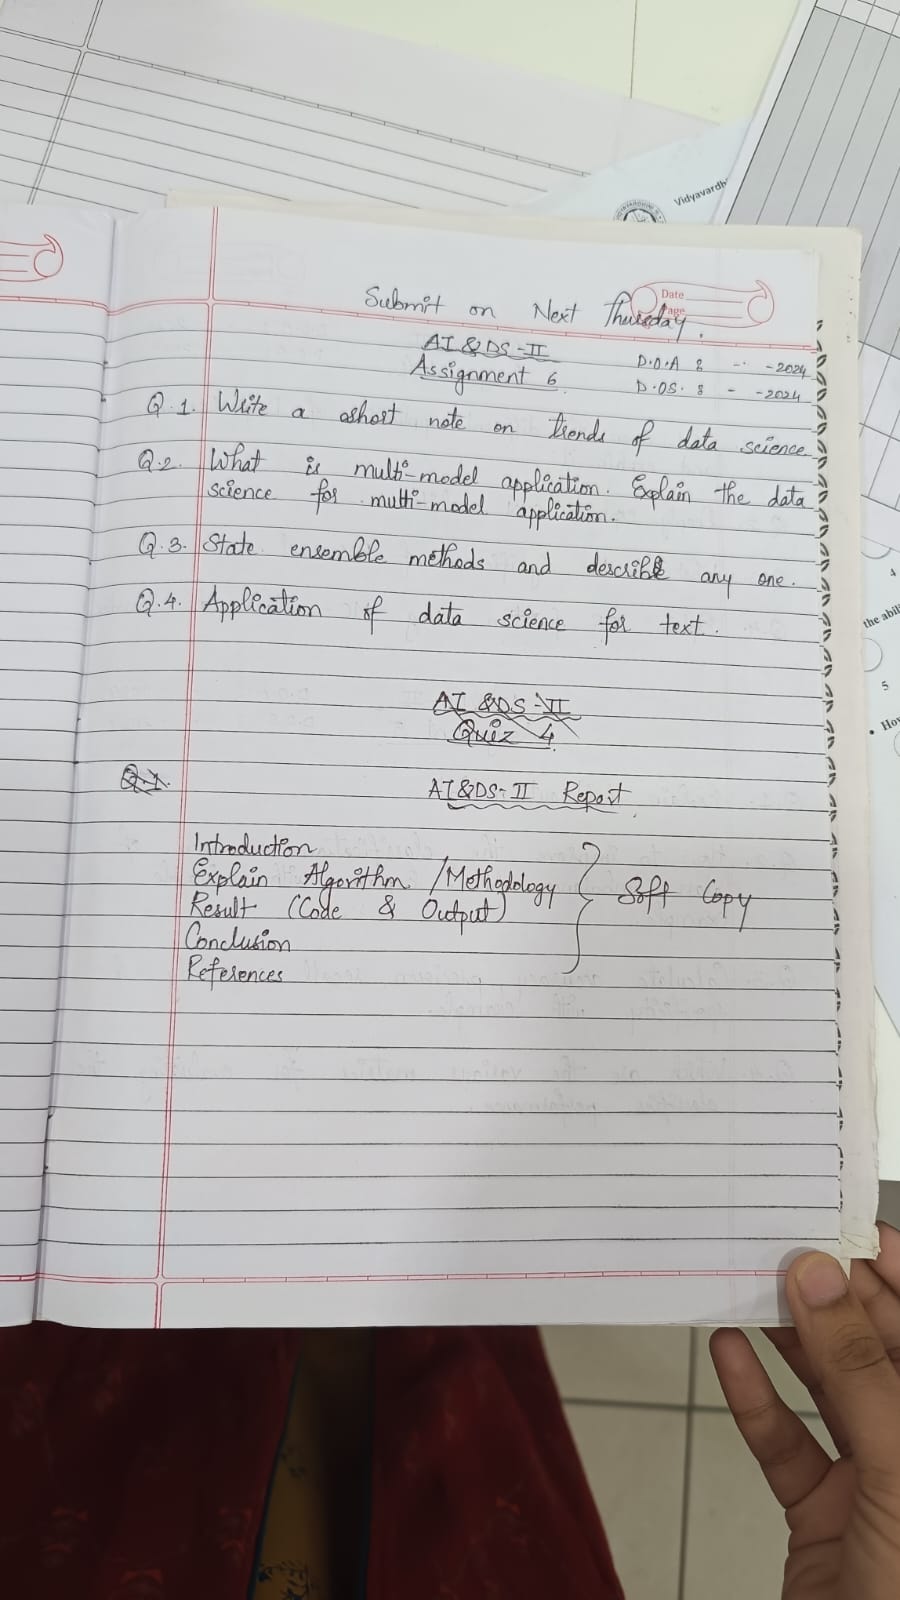 Vidyavardh
Submit on Next Thursday.
Date
Page
AI & DS - II
Assignment 6
D.O.A : - - 2024
D.O.S. : - - 2024
Q.1. Write a ashort note on trends of data science
Q.2. What is multi-model application. Explain the data
science for multi-model application.
Q.3. State ensemble methods and describe any one.
Q.4. Application of data science for text.
AI &DS - II
Quiz 4
Q.1.
AI&DS- II Report
Introduction
Explain Algorithm /Methodology
Result (Code & Output)
Soft Copy
Conclusion
References
4
the abili
5
• How